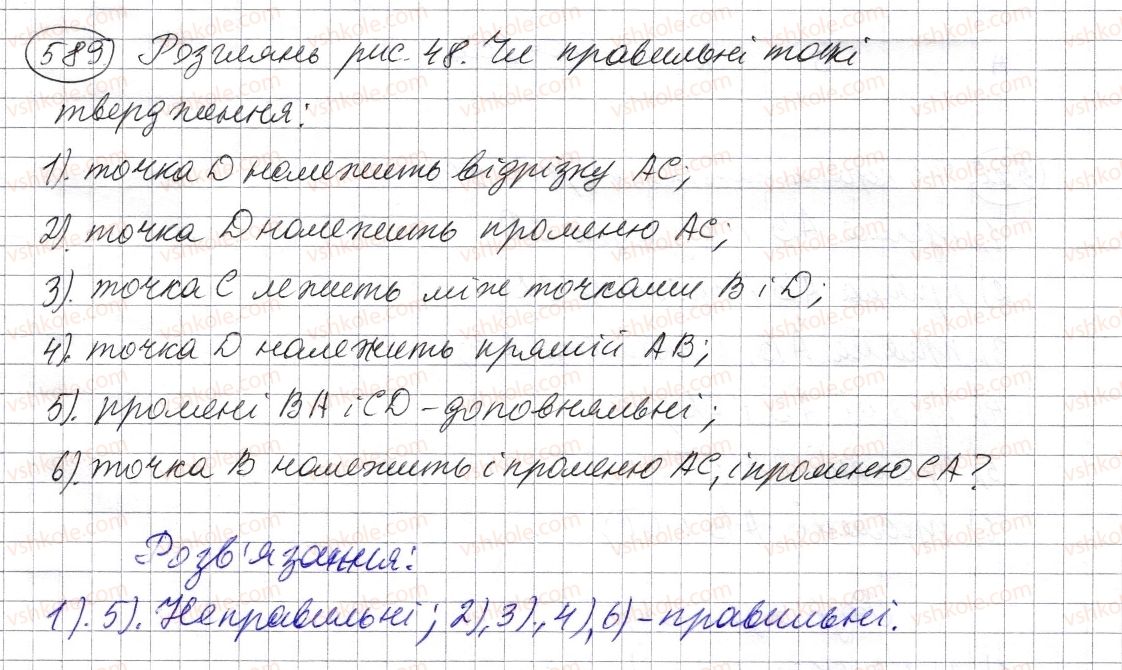 589) Розглянь рис. 48. Чи правильні такі
твердження:
1). точка D належить відрізку AC;
2). точка D належить променю AC;
3). точка C лежить між точками B і D;
4). точка D належить прямій AB;
5). промені BA і CD – доповняльні;
6). точка B належить і променю AC, і променю CA?
Розв'язання:
1). 5). Неправильні; 2), 3)., 4), 6) – правильні.